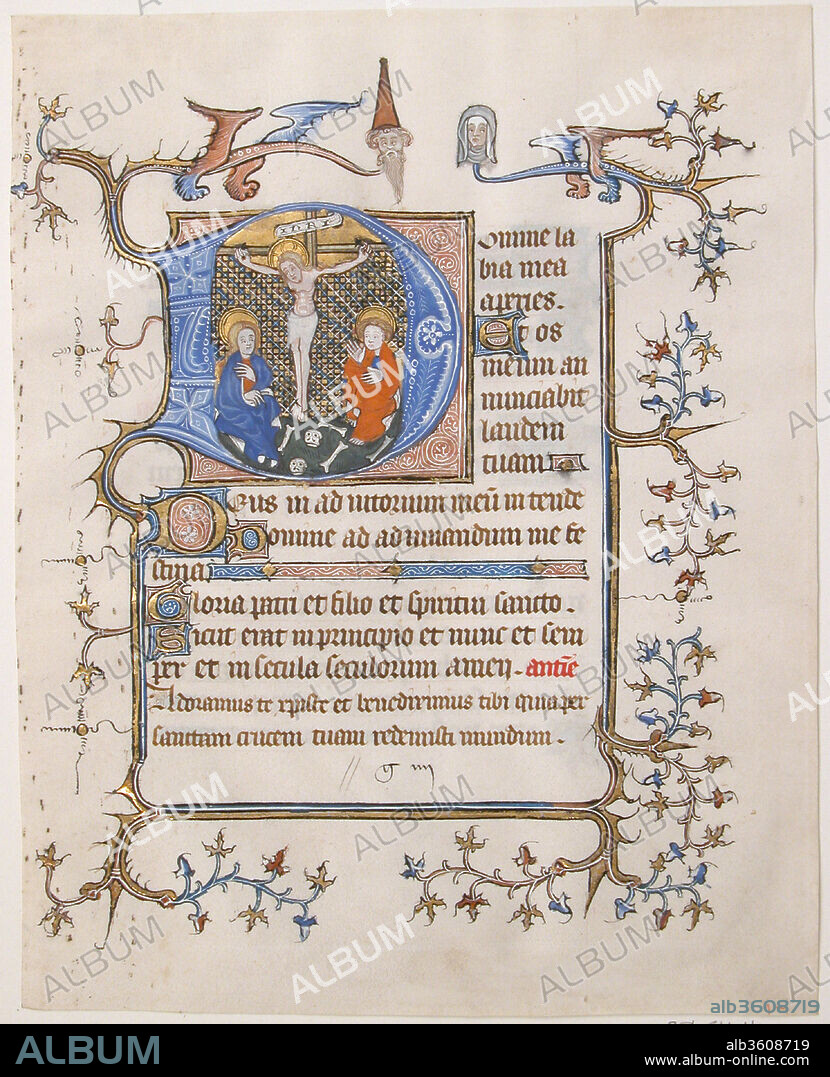 INRI
omine la
bia mea
aperies.
Et os
meum an
nunciabit
laudem
tuam
Deus in adiutorium meū intende
Domine ad adiuuandum me fe
stina
Gloria patri et filio et spiritui sancto.
Sicut erat in principio et nunc et sem
per et in secula seculorum amen. antiē
Adoramus te xpiste et benedicimus tibi quia per
sanctam crucem tuam redemisti mundum.
ALBUM
alb3608719
ALBUM
alb3608719
www.album-online.com